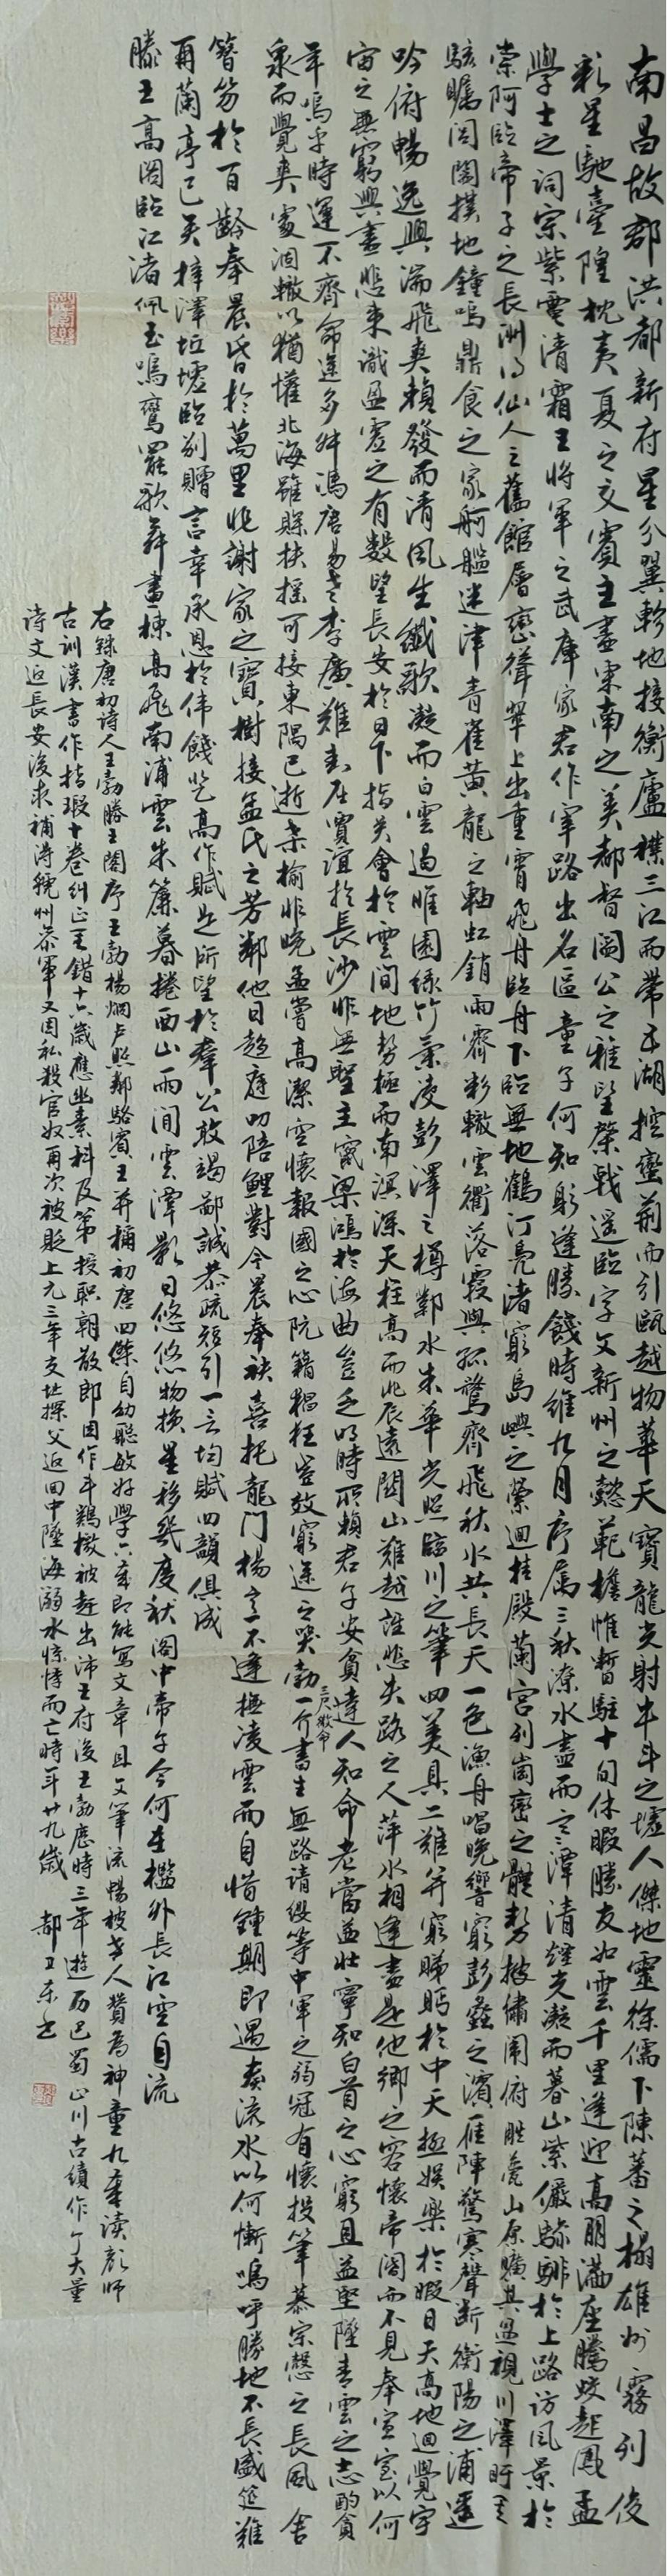 南昌故郡洪都新府星分翼軫地接衡廬襟三江而帶五湖控蠻荊而引甌越物華天寶龍光射牛斗之墟人傑地靈徐儒下陳蕃之榻雄州霧列俊
彩星馳臺隍枕夷夏之交賓主盡東南之美都督閻公之雅望棨戟遥臨宇文新州之懿範襜帷暫駐十旬休暇勝友如雲千里逢迎高朋滿座騰蛟起鳳孟
學士之詞宗紫電清霜王將軍之武庫家君作宰路出名區童子何知躬逢勝餞時維九月序属三秋潦水盡而寒潭清煙光凝而暮山紫儼驂騑於上路访風景於
崇阿臨帝子之長洲得仙人之舊館層巒聳翠上出重霄飛丹臨丹下臨無地鶴汀凫渚窮島嶼之縈迴桂殿蘭宮列崗巒之體勢披繡闈俯雕甍山原曠其盈視川澤盱其
駭矚閭閻撲地鐘鳴鼎食之家舸艦迷津青雀黃龍之軸虹銷雨霽彩徹雲衢落霞與孤鶩齊飛秋水共長天一色漁舟唱晚響窮彭蠡之濱雁陣驚寒聲斷衡陽之浦遥
吟俯暢逸興湍飛爽籟發而清風生纖歌凝而白雲遏睢園绿竹氣凌彭澤之樽鄴水朱華光照臨川之筆四美具二難并窮睇眄於中天極娛樂於暇日天高地迴覺宇
宙之無窮興盡悲來識盈虛之有數望長安於日下指吳會於雲間地勢極而南溟深天柱高而北辰遠關山難越誰悲失路之人萍水相逢盡是他鄉之客懷帝閽而不見奉宣室以何
年嗚乎時運不齊命途多舛馮唐易老李廣難封屈賈誼於長沙非無聖主竄梁鴻於海曲豈乏明時所賴君子安貧達人知命老當益壯寧知白首之心窮且益堅墜青雲之志酌貪
泉而覺爽處涸轍以猶懽北海雖賒扶搖可接東隅已逝桑榆非晚孟嘗高潔空懷報國之心阮籍猖狂豈效窮途之哭勃三尺微命一介書生無路请缨等中軍之弱冠有懷投筆慕宗愨之長風舍
簪笏於百齡奉晨昏於萬里非謝家之寶樹接孟氏之芳鄰他日趋庭叨陪鯉對今晨奉袂喜托龍門楊意不逢撫凌雲而自惜鍾期即遇奏流水以何慚嗚呼勝地不長盛筵難
再蘭亭已矣梓澤坵墟臨别贈言幸承恩於伟餞登高作賦是所望於羣公敢竭鄙誠恭疏短引一言均賦四韻俱成
滕王高閣臨江渚佩玉鳴鸞罷歌舞畫棟高飛南浦雲朱簾暮捲西山雨閒雲潭影日悠悠物换星移幾度秋阁中帝子今何在檻外長江空自流
右錄唐初詩人王勃滕王閣序王勃楊炯卢照鄰駱賓王并稱初唐四傑自幼聰敏好學六歲即能寫文章且文筆流暢被世人贊為神童九歲读颜师
古訓漢書作指瑕十卷纠正其錯十六歲應幽素科及第授职朝散郎因作斗鷄檄被赶出沛王府後王勃歷時三年遊历巴蜀山川古績作了大量
诗文返長安後求補得虢州參軍又因私殺官奴再次被貶上元三年交址探父返回中墜海溺水惊悸而亡時年廿九歲 郝卫东书